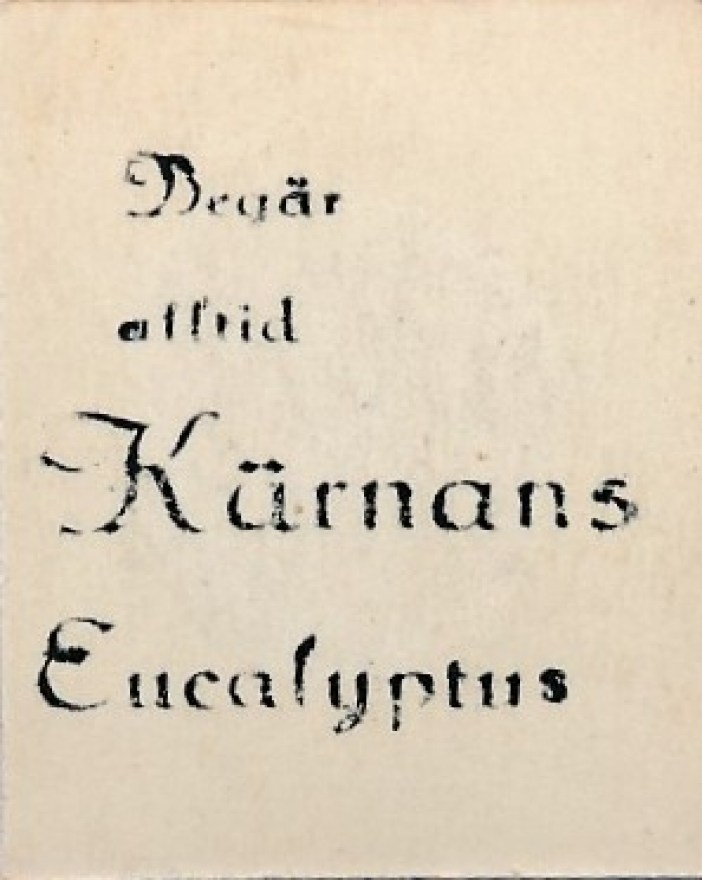 Begär
alltid
Kärnans
Eucalyptus